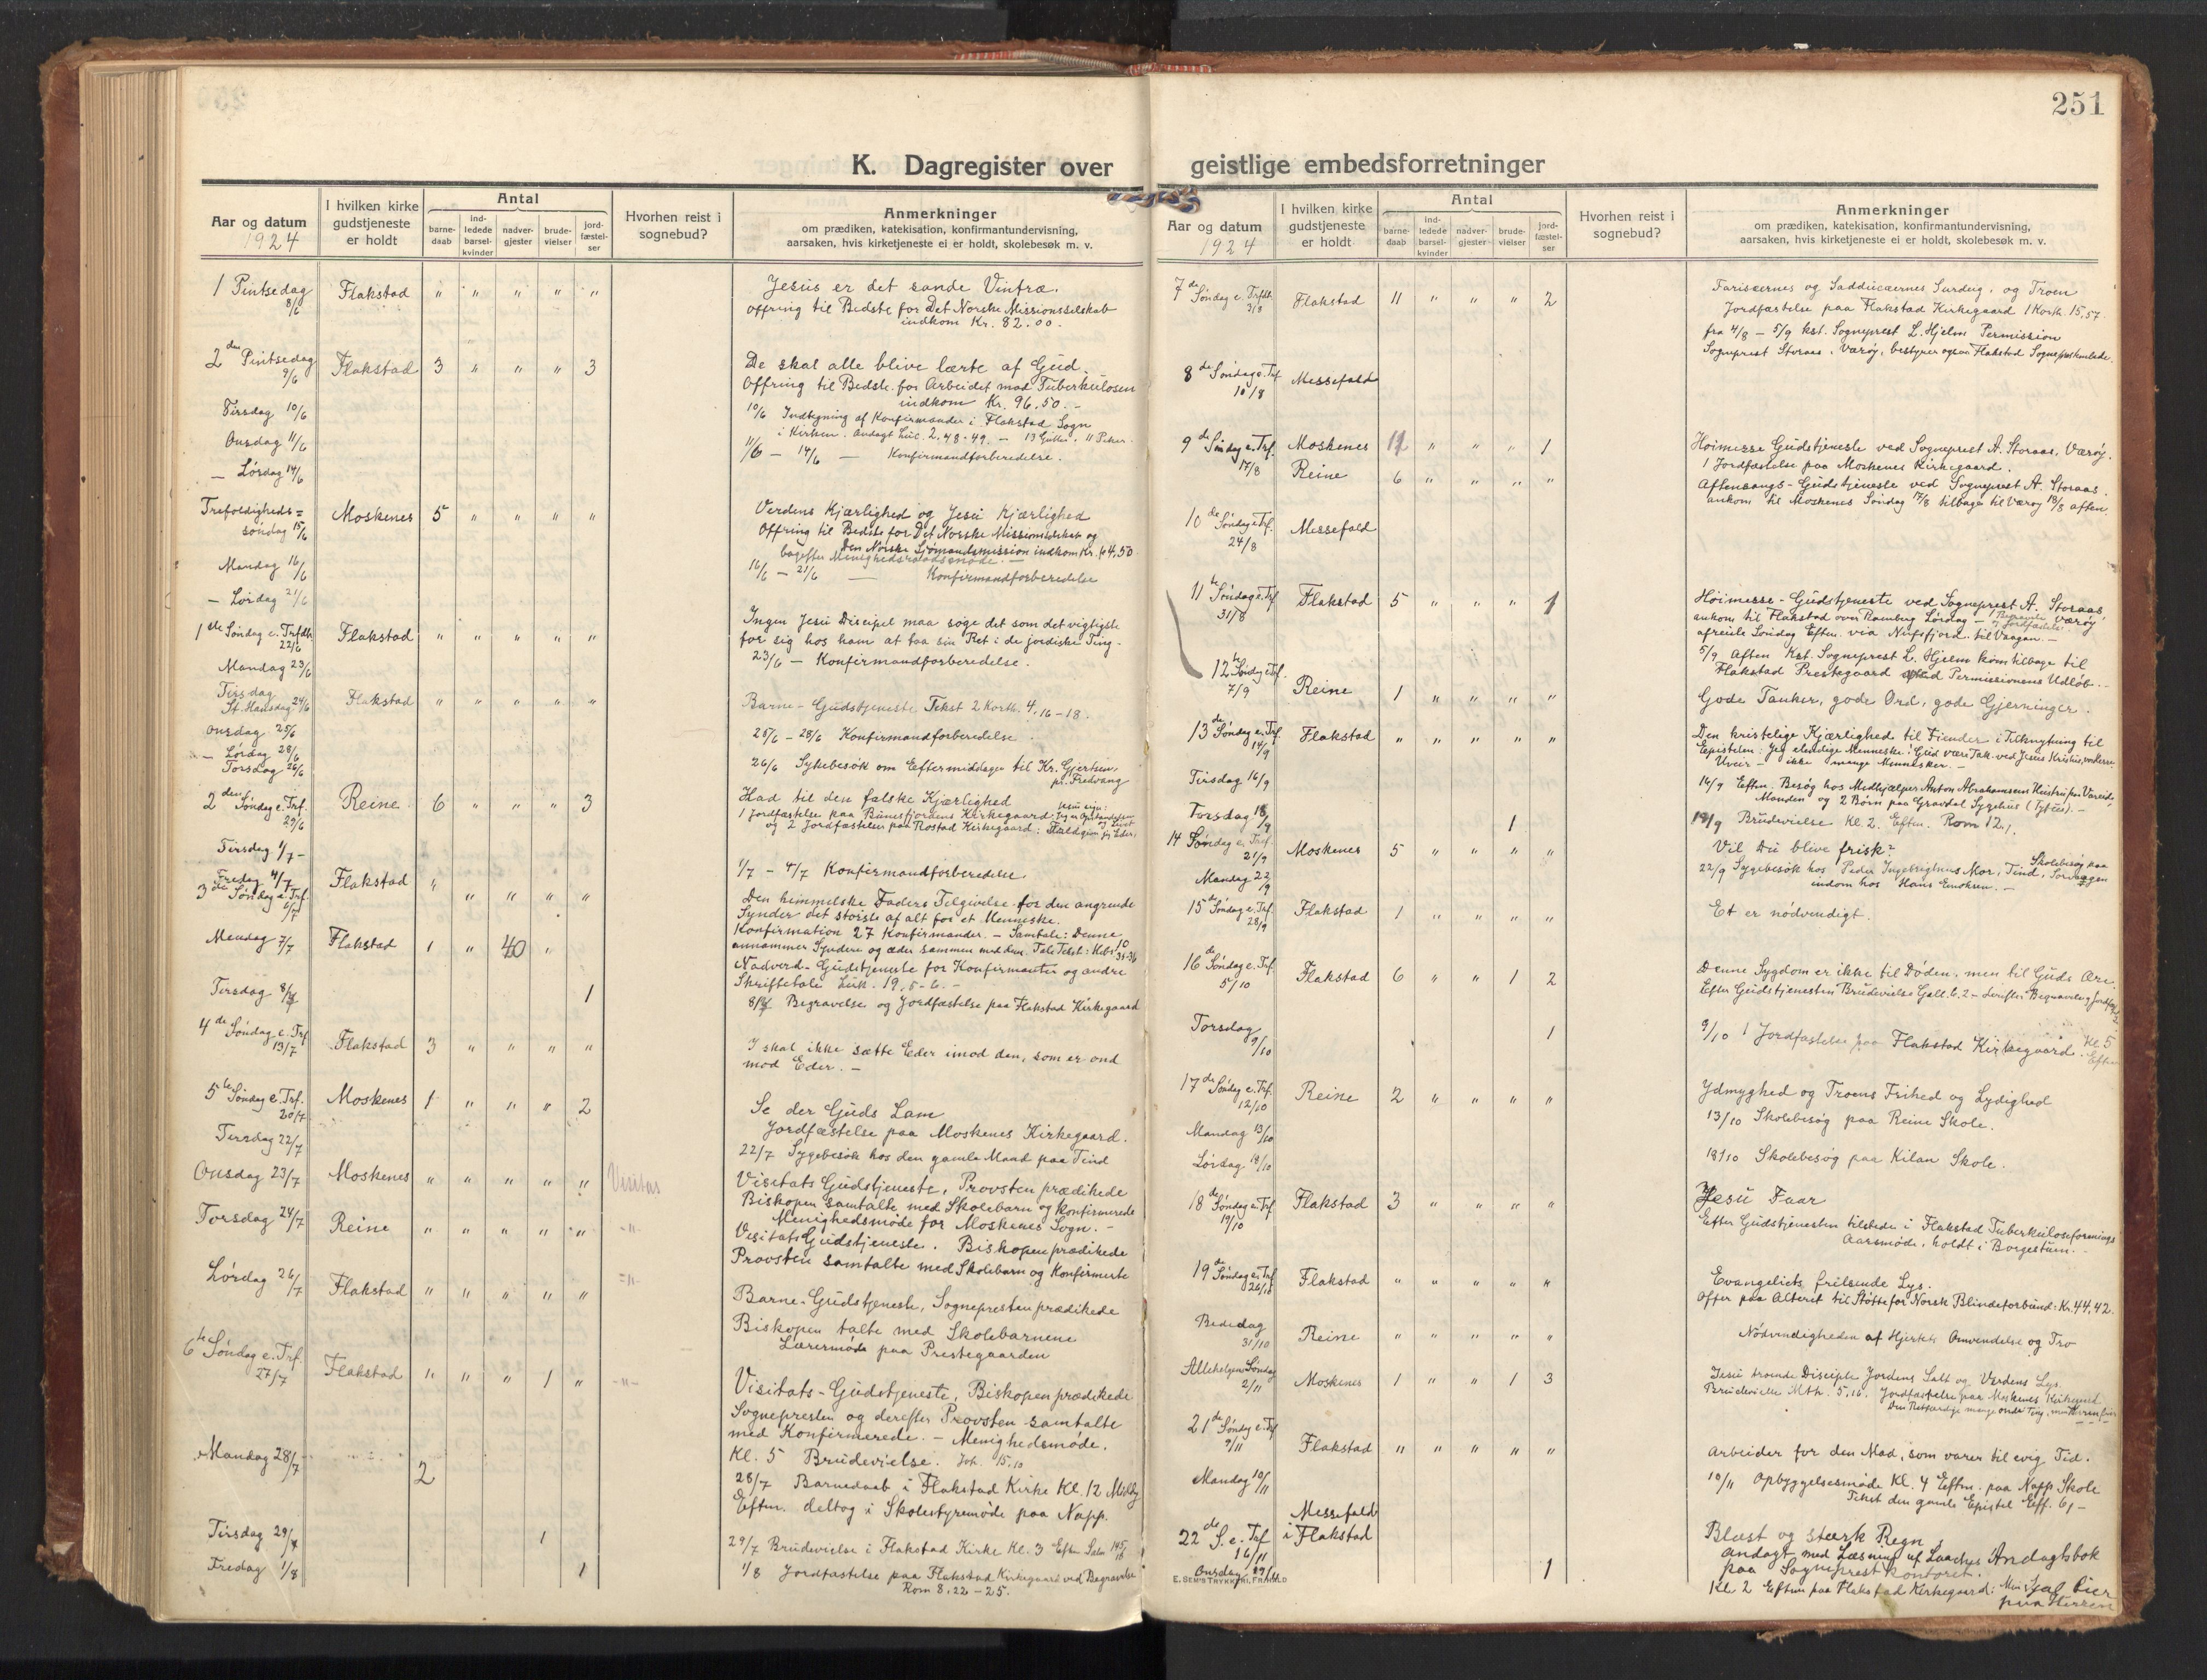 K. Dagregister over
Aar og datum
1924
I hvilken kirke
gudstjeneste
er holdt
Antal
barne-
daab
ind-
ledede
barsel-
kvinder
nadver-
gjester
brude-
vielser
jord-
fæstel-
ser
Hvorhen reist i
sognebud?
Anmerkninger
om prædiken, katekisation, konfirmantundervisning,
aarsaken, hvis kirketjeneste ei er holdt, skolebesøk m. v.
1 Pintsedag 8/6 Flakstad " " " " " Jesus er det sande Vintræ.
Offring til Bedste for Det Norske Missionsselskab
indkom Kr. 82.00.
2den Pintsedag 9/6 Flakstad 3 " " " 3 De skal alle blive lærte af Gud.
Offring til Bedste for Arbeidet mod Tuberkulosen
indkom Kr. 96.50.-
Tirsdag 10/6 10/6 Indtegning af Konfirmander i Flakstad Sogn
i Kirken. Andagt Luc. 2,48-49. - 13 Gutter, 11 Piker.
Onsdag 11/6
- Lördag 14/6 11/6 - 14/6 - Konfirmandforberedelse.
Trefoldigheds=
söndag 15/6 Moskenes 5 " " " " Verdens Kjærlighed og Jesu Kjærlighed
Offring til Bedste for Det Norske Missionsselskab og
Den Norske Sjömandsmission indkom Kr. 64,50
bagefter Menighedsraadsmöde. -
Mandag 16/6
- Lördag 21/6 16/6 - 21/6 - Konfirmandforberedelse
1ste Söndag e. Trfdh. 22/6 Flakstad " " " " " Ingen Jesu Discipel maa söge det som det vigtigste
for sig hos ham at faa sin Ret i de jordiske Ting.
Mandag 23/6 23/6 - Konfirmandforberedelse.
Tirsdag
St. Hansdag 24/6 Flakstad " " " " " Barne-Gudstjeneste Tekst 2 Korth. 4,16-18.
Onsdag 25/6
- Lördag 28/6 25/6 - 28/6 Konfirmandforberedelse
Torsdag 26/6 26/6 Sykebesök om Eftermiddagen til Kr. Gjertsen
pr. Fredvang
2den Söndag e. Trf. 29/6 Reine 6 " " " 3 Had til den falske Kjærlighed
1 Jordfæstelse paa Bunesfjordens Kirkegaard
og 2 Jordfæstelser paa Rostad Kirkegaard:
Tirsdag 1/7 -
Fredag 4/7 1/7 - 4/7 Konfirmandforberedelse
3die Söndag e. Trf. 6/7 Flakstad " " " " " Den himmelske Faders Tilgivelse for den angrende
Synder det störste af alt for et Menneske.
Konfirmation 27 Konfirmander. - Samtale: Denne
annammer Syndere og æder sammen med dem. Tale Tekst: Hebr. 10 35-36
Mandag 7/7 Flakstad 1 " 40 " Nadverd-Gudstjeneste for Konfirmanter og andre
Skriftetale Luk. 19,5-6.-
Tirsdag 8/7 1 8/7 Begravelse og Jordfæstelse paa Flakstad Kirkegaard
4de Söndag e. Trf. 13/7 Flakstad 3 " " " " I skal ikke sætte Eder imod den, som er ond
mod Eder. -
5te Söndag e. Trf. 20/7 Moskenes 1 " " " 2 Se der Guds Lam
Jordfæstelse paa Moskenes Kirkegaard.
Tirsdag 22/7 22/7 Sygebesök hos den gamle Mand paa Tind
Onsdag 23/7 Moskenes " " " " " Visitas Visitats Gudstjeneste, Provsten prædikede
Biskopen samtalte med Skolebarn og konfirmerede
Menighedsmöde for Moskenes Sogn. -
Torsdag 24/7 Reine " " " " " -"- Visitats Gudstjeneste. Biskopen prædikede
Provsten samtalte med Skolebarn og Konfirmerte
Lördag 26/7 Flakstad " " " " " -"- Barne-Gudstjeneste, Sognepresten prædikede
Biskopen talte med Skolebarnene
Lærermöde paa Prestegaarden
6te Söndag e. Trf. 27/7 Flakstad " " " 1 " -"- Visitats-Gudstjeneste, Biskopen prædikede
Sognepresten og derefter Provsten samtalte
med Konfirmerede. - Menighedsmöde.
Kl. 5 Brudevielse. Joh. 15,10
Mandag 28/7 2 28/7 Barnedaab i Flakstad Kirke Kl. 12 Middg
Eftm. deltog i Skolestyremöde paa Napp.
Tirsdag 29/7 1 29/7 Brudevielse i Flakstad Kirke Kl. 3 Eftm Salm 145
Fredag 1/8 1 1/8 Jordfæstelse paa Flakstad Kirkegaard ved Begravelse
Rom 8,22-25.
251
geistlige embedsforretninger
Aar og datum
1924
I hvilken kirke
gudstjeneste
er holdt
Antal
barne-
daab
ind-
ledede
barsel-
kvinder
nadver-
gjester
brude-
vielser
jord-
fæstel-
ser
Hvorhen reist i
sognebud?
Anmerkninger
om prædiken, katekisation, konfirmantundervisning,
aarsaken, hvis kirketjeneste ei er holdt, skolebesøk m. v.
7de Söndag e. Trfdh. 3/8 Flakstad 11 " " " 2 Fariseernes og Sadducæernes Surdeig, og Troen
Jordfæstelse paa Flakstad Kirkegaard 1 Korth. 15,57.
fra 4/8 - 5/9 kst. Sogneprest L. Hjelm Permission
Sogneprest Storaas,Væröy, bestyrer ogsaa Flakstad Sogneprestembede.
8de Söndag e. Trf. 10/8 Messefald
9de Söndag e. Trf. 17/8 Moskenes 12 " " " 1 Höimesse Gudstjeneste ved Sogneprest A. Storaas, Værøy.
1 Jordfæstelse paa Moskenes Kirkegaard.
Reine 6 " " " " Aftensangs-Gudstjeneste ved Sogneprest A. Storaas.
ankom til Moskenes Söndag 17/8 tilbage til Værøy 18/8 aften.
10de Söndag e. Trf. 24/8 Messefald
11te Söndag e. Trf. 31/8 Flakstad 5 " " " 1 Höimesse-Gudstjeneste ved Sogneprest A. Storaas
Værøy
ankom til Flakstad over Ramberg Lördag -
afreiste Söndag Eftm. via Nufsfjord til Vaagan. -
5/9 Aften Kst. Sogneprest L. Hjelm kom tilbage til
Flakstad Prestegaard ved Permissionens Udlöb. -
12te Söndag e. Trf. 7/9 Reine 1 " " " " Gode Tanker, gode Ord, gode Gjerninger.
13de Söndag e. Trf. 14/9 Flakstad " " " " " Den kristelige Kjærlighed til Fiender i Tilknytning til
Epistelen: Jeg elendige Menneske! Gud være Tak ved Jesus Kristus,
Uveir - ikke mange Mennesker. -
Tirsdag 16/9 16/9 Eftm. Besög hos Medhjælper Anton Abrahamsens Hustru
Manden og 2 Börn paa Gravdal Sygehus (Tyfus). -
Torsdag 18/9 1 18/9 Brudevielse Kl. 2. Eftm. Rom 12,1.
14 Söndag e. Tref. 21/9 Moskenes 5 " " " " Vil Du blive frisk?
Mandag 22/9 22/9 Sygebesök hos Peder Ingebrigtsens Mor, Tind, Skolebesög paa Sörvaagen
indom hos Hans Enoksen. -
15de Söndag e. Trf. 28/9 Flakstad 1 " " " " Et er nödvendigt.
16de Söndag e. Trf. 5/10 Flakstad 6 " " 1 2 Denne Sygdom er ikke til Döden, men til Guds Ære.
Efter Gudstjenesten Brudevielse Galt. 6,2 - derefter Begravelse,
Torsdag 9/10 1 9/10 1 Jordfæstelse paa Flakstad Kirkegaard. Kl. 5 Eftm
17de Söndag e. Trf. 12/10 Reine 2 " " " " Ydmyghed og Troens Frihed og Lydighed
Mandag 13/10 13/10 Skolebesög paa Reine Skole.
Lördag 18/10 18/10 Skolebesög paa Kilan Skole.
18de Söndag e. Trf. 19/10 Flakstad 3 " " " " Jesu Faar
Efter Gudstjenesten tilstede i Flakstad Tuberkuloseforenings
Aarsmöde, holdt i Borgestuen. -
19de Söndag e. Trf. 26/10 Flakstad " " " " " Evangeliets frelsende Lys.
Offer paa Alteret til Stötte for Norsk Blindeforbund: Kr. 44,42.
Bededag 31/10 Reine " " " " " Nödvendigheden af Hjertets Omvendelse og Tro
Allehelgens Söndag 2/11 Moskenes 1 " " 1 3 Jesu troende Disciple Jordens Salt og Verdens Lys.
Brudevielse Mth. 5,16. Jordfæstelse paa Moskenes Kirkegaard
21de Söndag e. Trf. 9/11 Flakstad " " " " " Arbeider for den Mad, som varer til evig Tid.
Mandag 10/11 10/11 Opbyggelsesmöde Kl. 4 Eftm. paa Napp Skole
Tekst den gamle Epistel Eff. 6, -
22de S. e. Trf 16/11 Messefald
i Flakstad Blæst og stærk Regn,
Andagt med Læsning af Laaches Andagtsbok
paa Sogneprestkontoret.
Onsdag 19/11 1 Kl. 2 Eftm paa Flakstad Kirkegaard: Min Sjæl bier
paa Herren
E. SEM'S TRYKKERI, FR.HALD